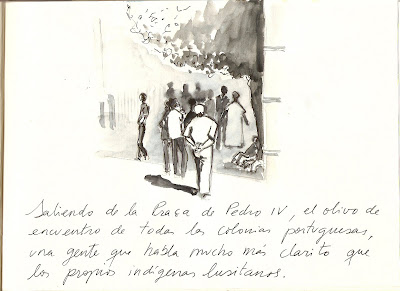 Saliendo de la Praça de Pedro IV, el olivo de
encuentro de todas las colonias portuguesas,
una gente que habla mucho más clarito que
los propios indígenas lusitanos.